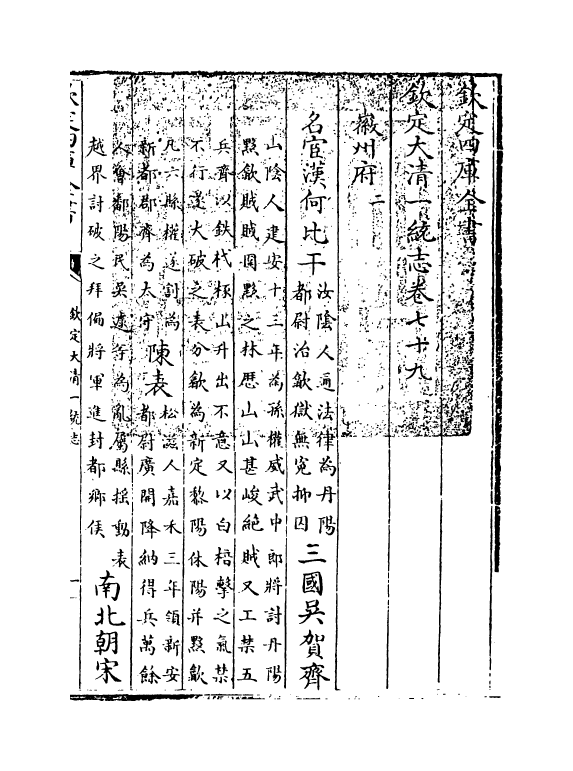 欽定四庫全書
欽定大清一統志卷七十九
徽州府二
名宦漢何比干
汝陰人通法律為丹陽
都尉治歙獄無寃抑因
三國吳賀齊
山陰人建安十三年為孫權威武中郎將討丹陽
黟歙賊賊圍黟之林歷山山甚峻絶賊又工禁五
兵齊以鉄杙椓山升出不意又以白棓擊之氣禁
不行遂大破之表分歙為新定黎陽休陽并黟歙
凡六縣權遂割為
新都郡齊為太守
陳表
松滋人嘉禾三年領新安
都尉廣開降納得兵萬餘
人會鄱陽民吳遽等為亂屬縣揺動表
越界討破之拜偏將軍進封都鄉侯
南北朝宋
欽定四庫全書
欽定大清一統志
一